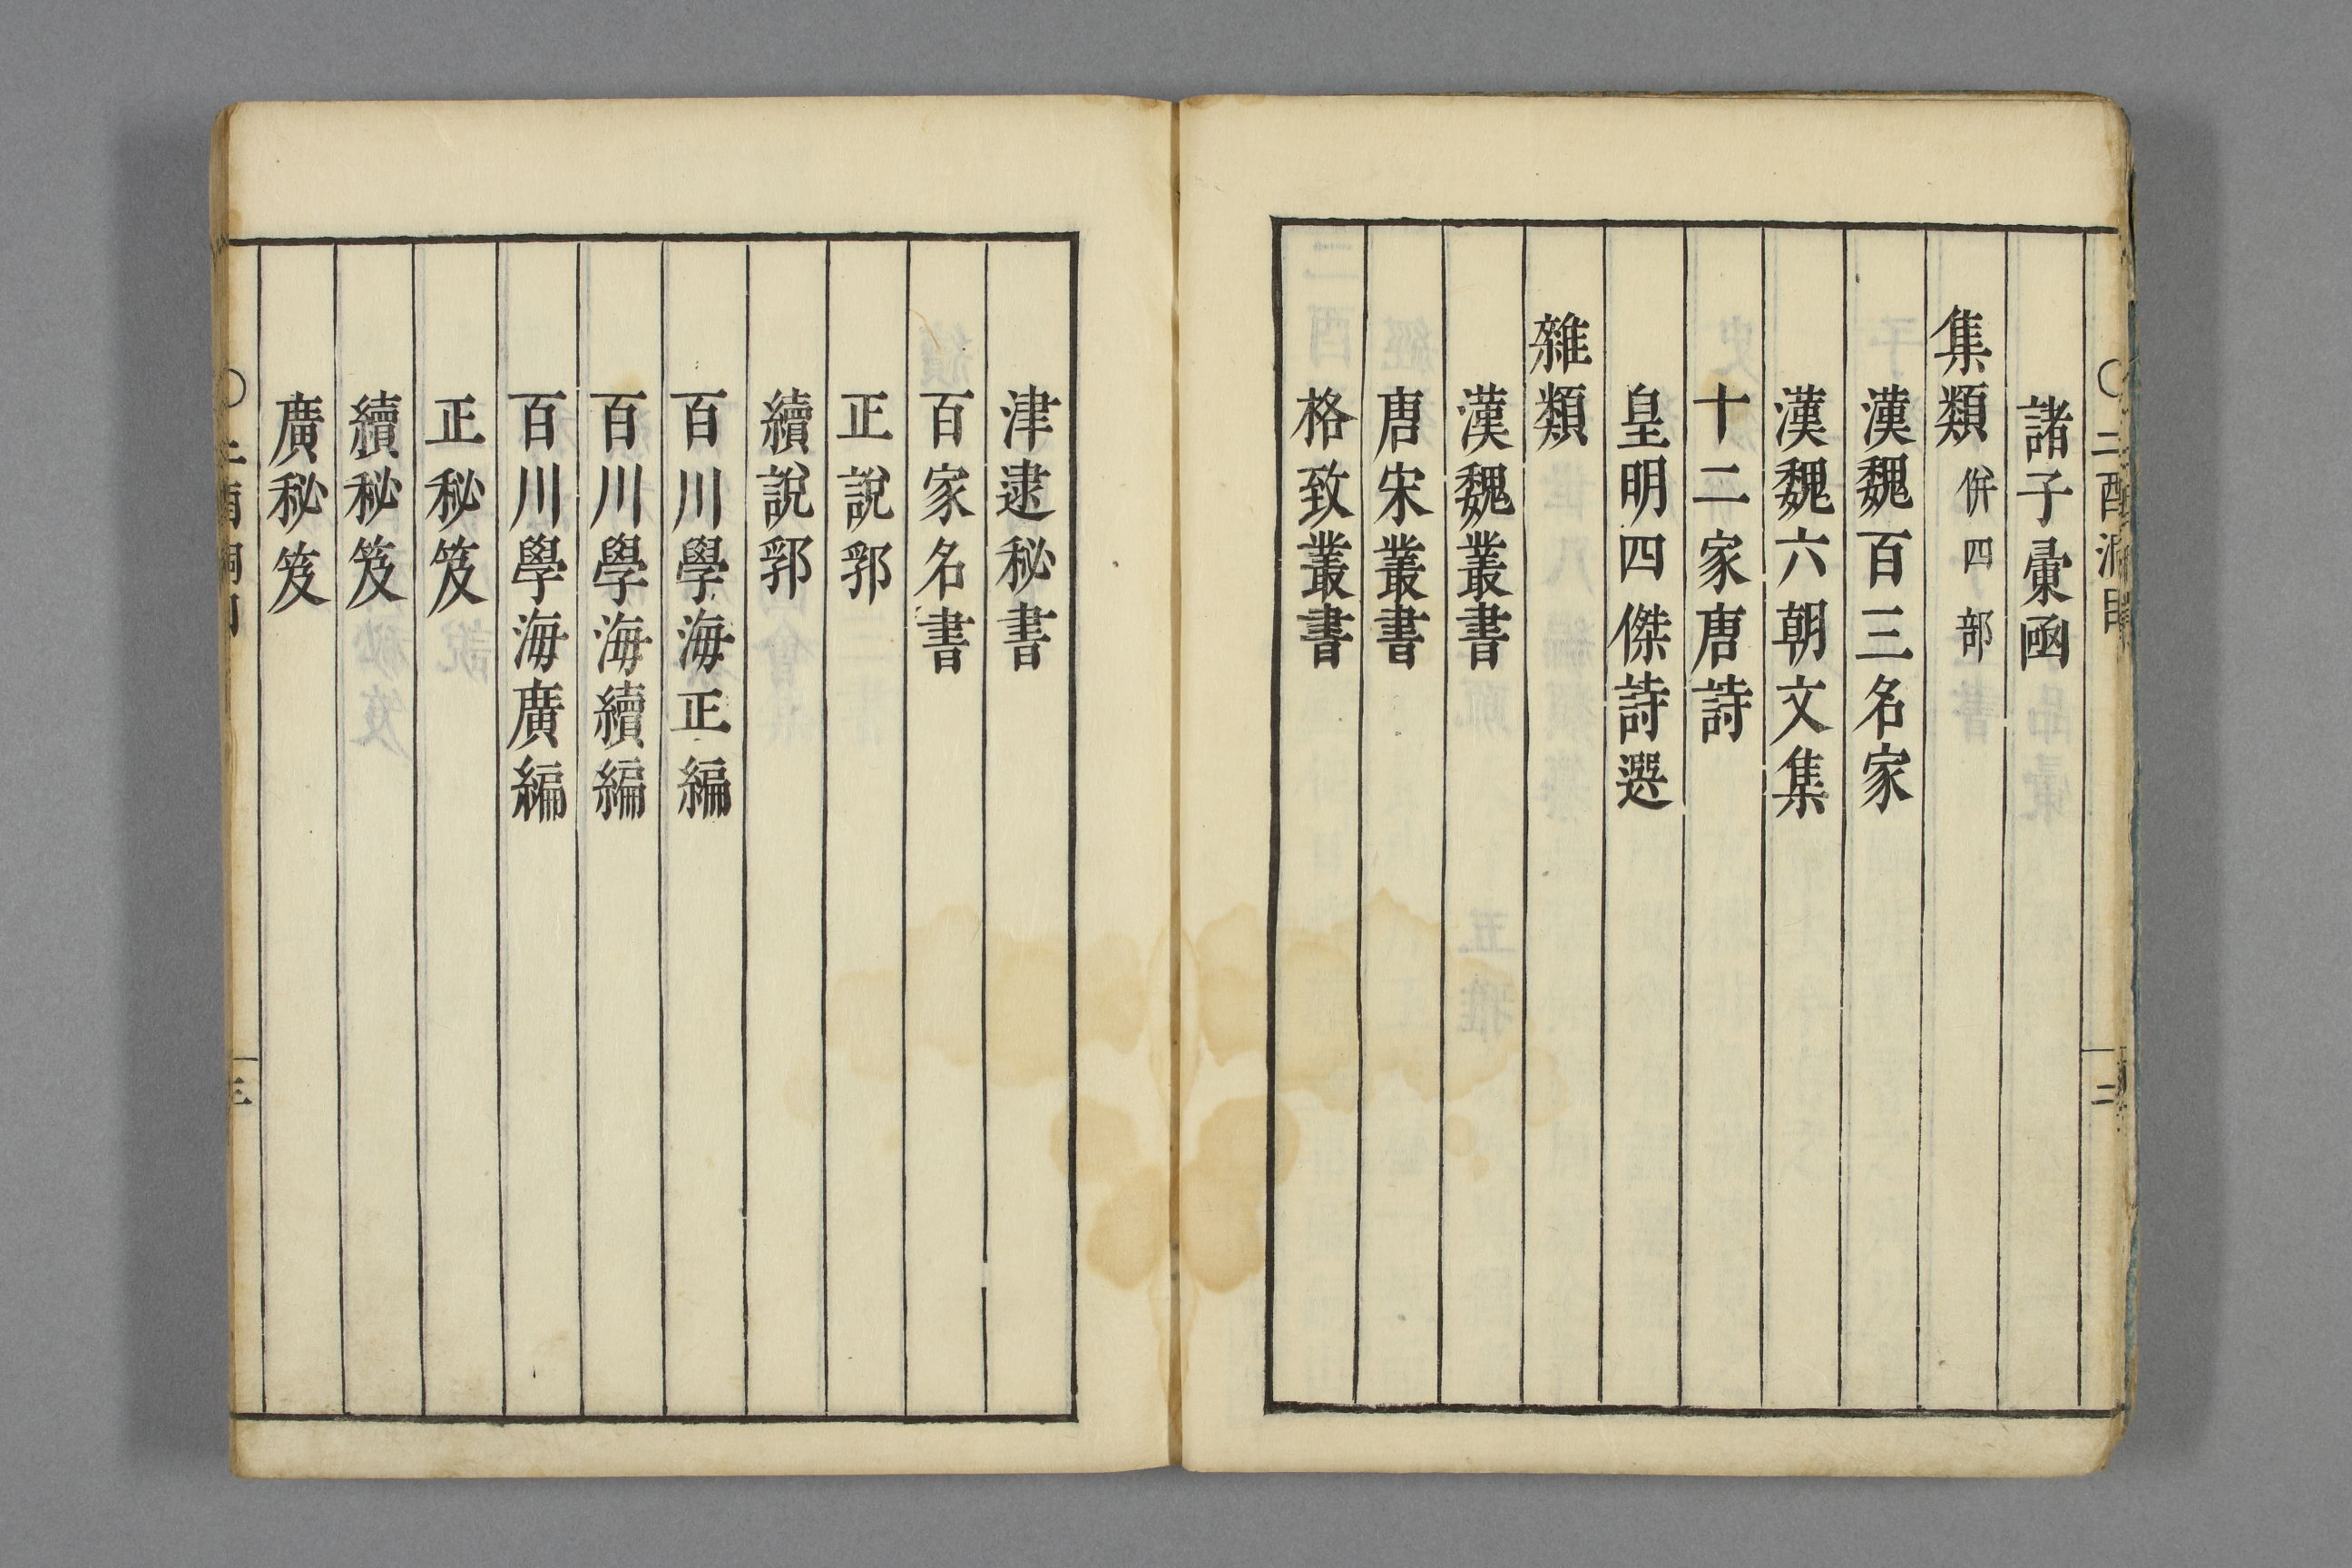 諸子彙函
集類 併四部
漢魏百三名家
漢魏六朝文集
十二家唐詩
皇明四傑詩選
雜類
漢魏叢書
唐宋叢書
格致叢書
津逮秘書
百家名書
正說郛
續說郛
百川學海正編
百川學海續編
百川學海廣編
正秘笈
續秘笈
廣秘笈
三